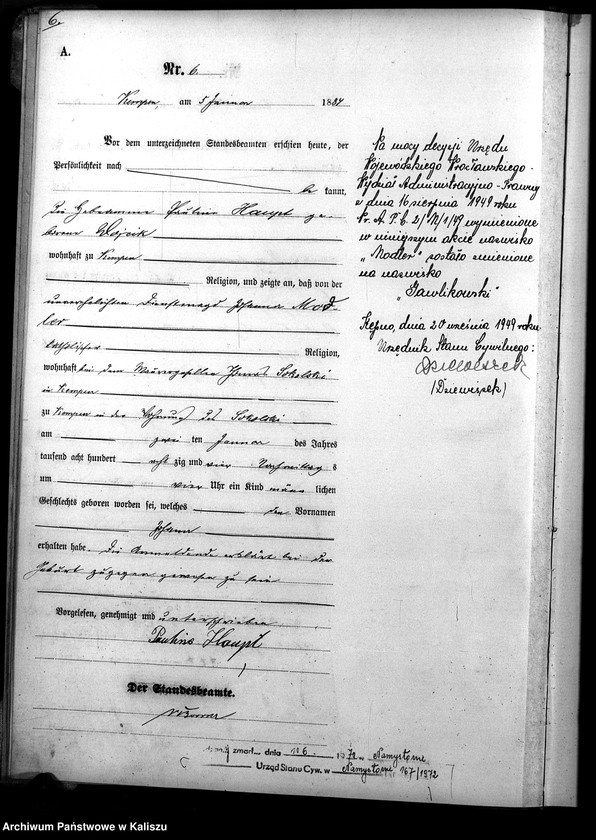 6.
A.
Nr. 6.
Kempen, am 5 Januar 1884
Vor dem unterzeichneten Standesbeamten erschien heute, der
Persönlichkeit nach
be kannt,
die Hebeamme Pauline Haupt ge-
borene Wojcik
wohnhaft zu Kempen
Religion, und zeigte an, daß von der
unverehelichten Dienstmagd Johanna Mod-
ler
katholischer Religion,
wohnhaft bei dem Maurergesellen Sokolski
in Kempen
zu Kempen in der Wohnung des Sokolski
am zwei ten Januar des Jahres
tausend acht hundert acht zig und vier Vormittag s
um vier Uhr ein Kind männ lichen
Geschlechts geboren worden sei, welches den Vornamen
Johann
erhalten habe. Die Anmeldende erklärt bei der
Geburt zugegen gewesen zu sein
Vorgelesen, genehmigt und unterschrieben
Pauline Haupt
Der Standesbeamte.
Na mocy decyzji Urzędu
Wojewódzkiego Wrocławskiego -
Wydział Administracyjno-Prawny
z dnia 16 sierpnia 1949 roku
Nr. A.P.C. 2/N/1/49 wymienione
w niniejszym akcie nazwisko
„Modler" zostało zmienione
na nazwisko
„Gawlikowski"
Kępno, dnia 20 września 1949 roku
Urzędnik Stanu Cywilnego:
(Dziewięcek)
zmarł... dnia 6. 1972 w Namysłowie
Urząd Stanu Cyw. w Namysłowie 167/1972
Archiwum Państwowe w Kaliszu